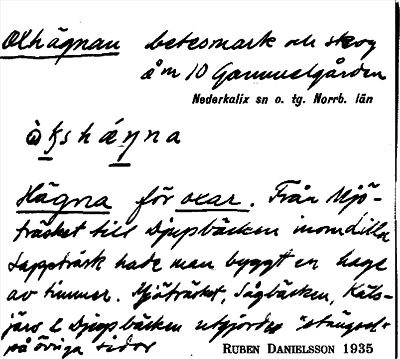 Oxhägnan betesmark och skog
å m 10 Gammelgården
Nederkalix sn o. tg. Norrb. län
Hägna för oxar. Från Mjö-
träsket till Djupbäcken inom Lilla
Lappträsk hade man byggt en hage
av timmer. Mjöträsket, Sågbäcken, Käls-
järv & Djupbäcken utgjorde "stängsel"
på övriga sidor
RUBEN DANIELSSON 1935